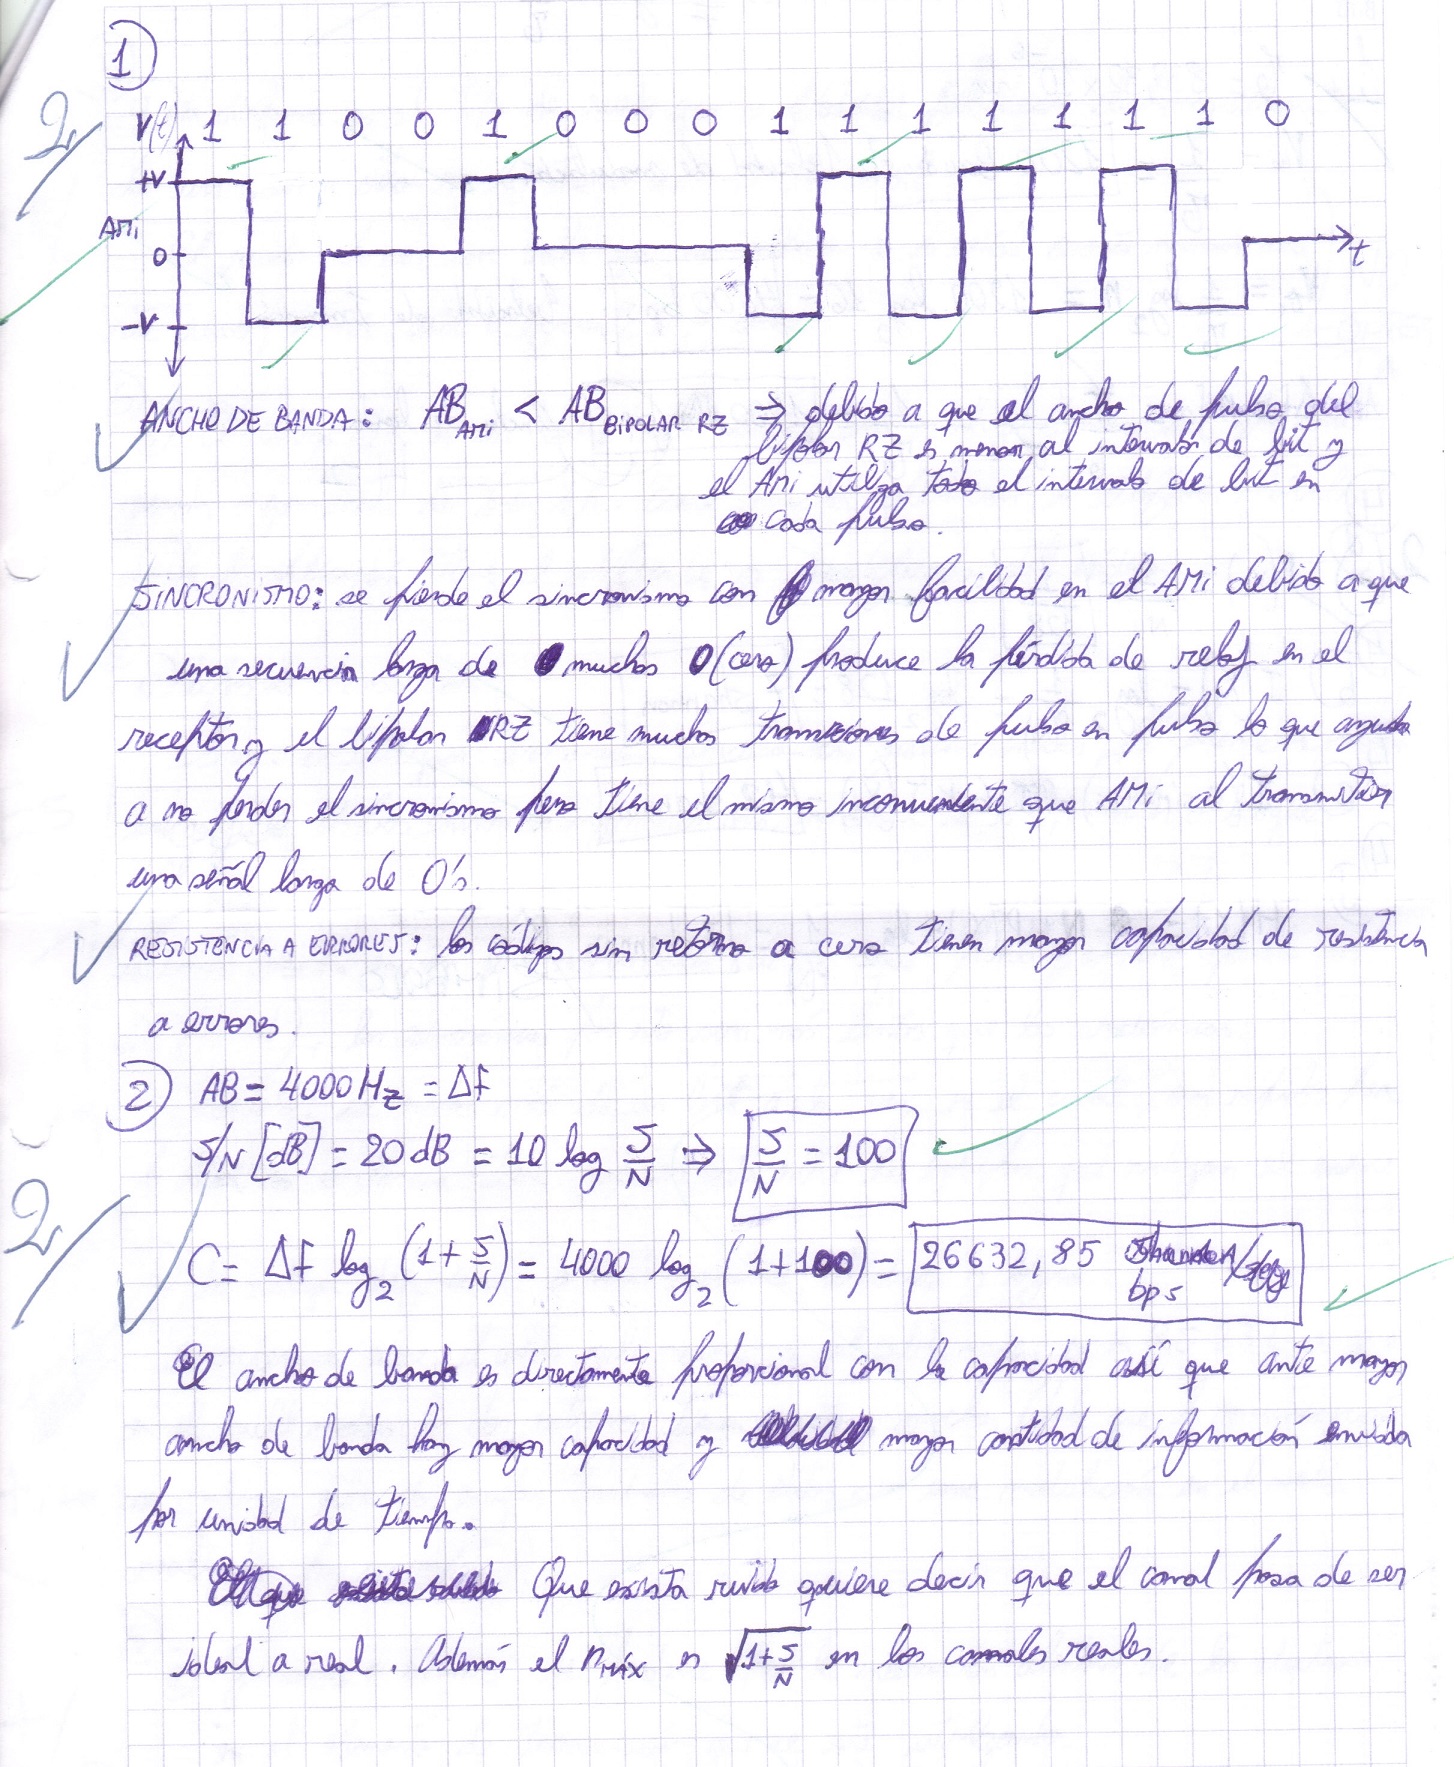 1
2
V(t) 1 1 0 0 1 0 0 0 1 1 1 1 1 1 1 0
+V
AMi
0
t
-V
ANCHO DE BANDA: AB AMi < AB BiPOLAR RZ ⇒ debido a que el ancho de pulso del
bipolar RZ es menor al intervalo de bit y
el AMi utiliza todo el intervalo de bit en
cada pulso.
SINCRONISMO: se pierde el sincronismo con mayor facilidad en el AMi debido a que
una secuencia larga de muchos 0 (cero) produce la pérdida de reloj en el
receptor y el bipolar RZ tiene muchas transiciones de pulso en pulso lo que ayuda
a no perder el sincronismo pero tiene el mismo inconveniente que AMi al transmitir
una señal larga de 0's.
RESISTENCIA A ERRORES: los códigos sin retorno a cero tienen mayor capacidad de resistencia
a errores.
2 AB = 4000 Hz = Δf
S/N [dB] = 20 dB = 10 log S/N ⇒ S/N = 100
2
C = Δf log₂ (1 + S/N) = 4000 log₂ (1+100) = 26632,85
bps
El ancho de banda es directamente proporcional con la capacidad así que ante mayor
ancho de banda hay mayor capacidad y mayor cantidad de información enviada
por unidad de tiempo.
Que exista ruido quiere decir que el canal pasa de ser
ideal a real. Además el nmáx es √1+S/N en los canales reales.